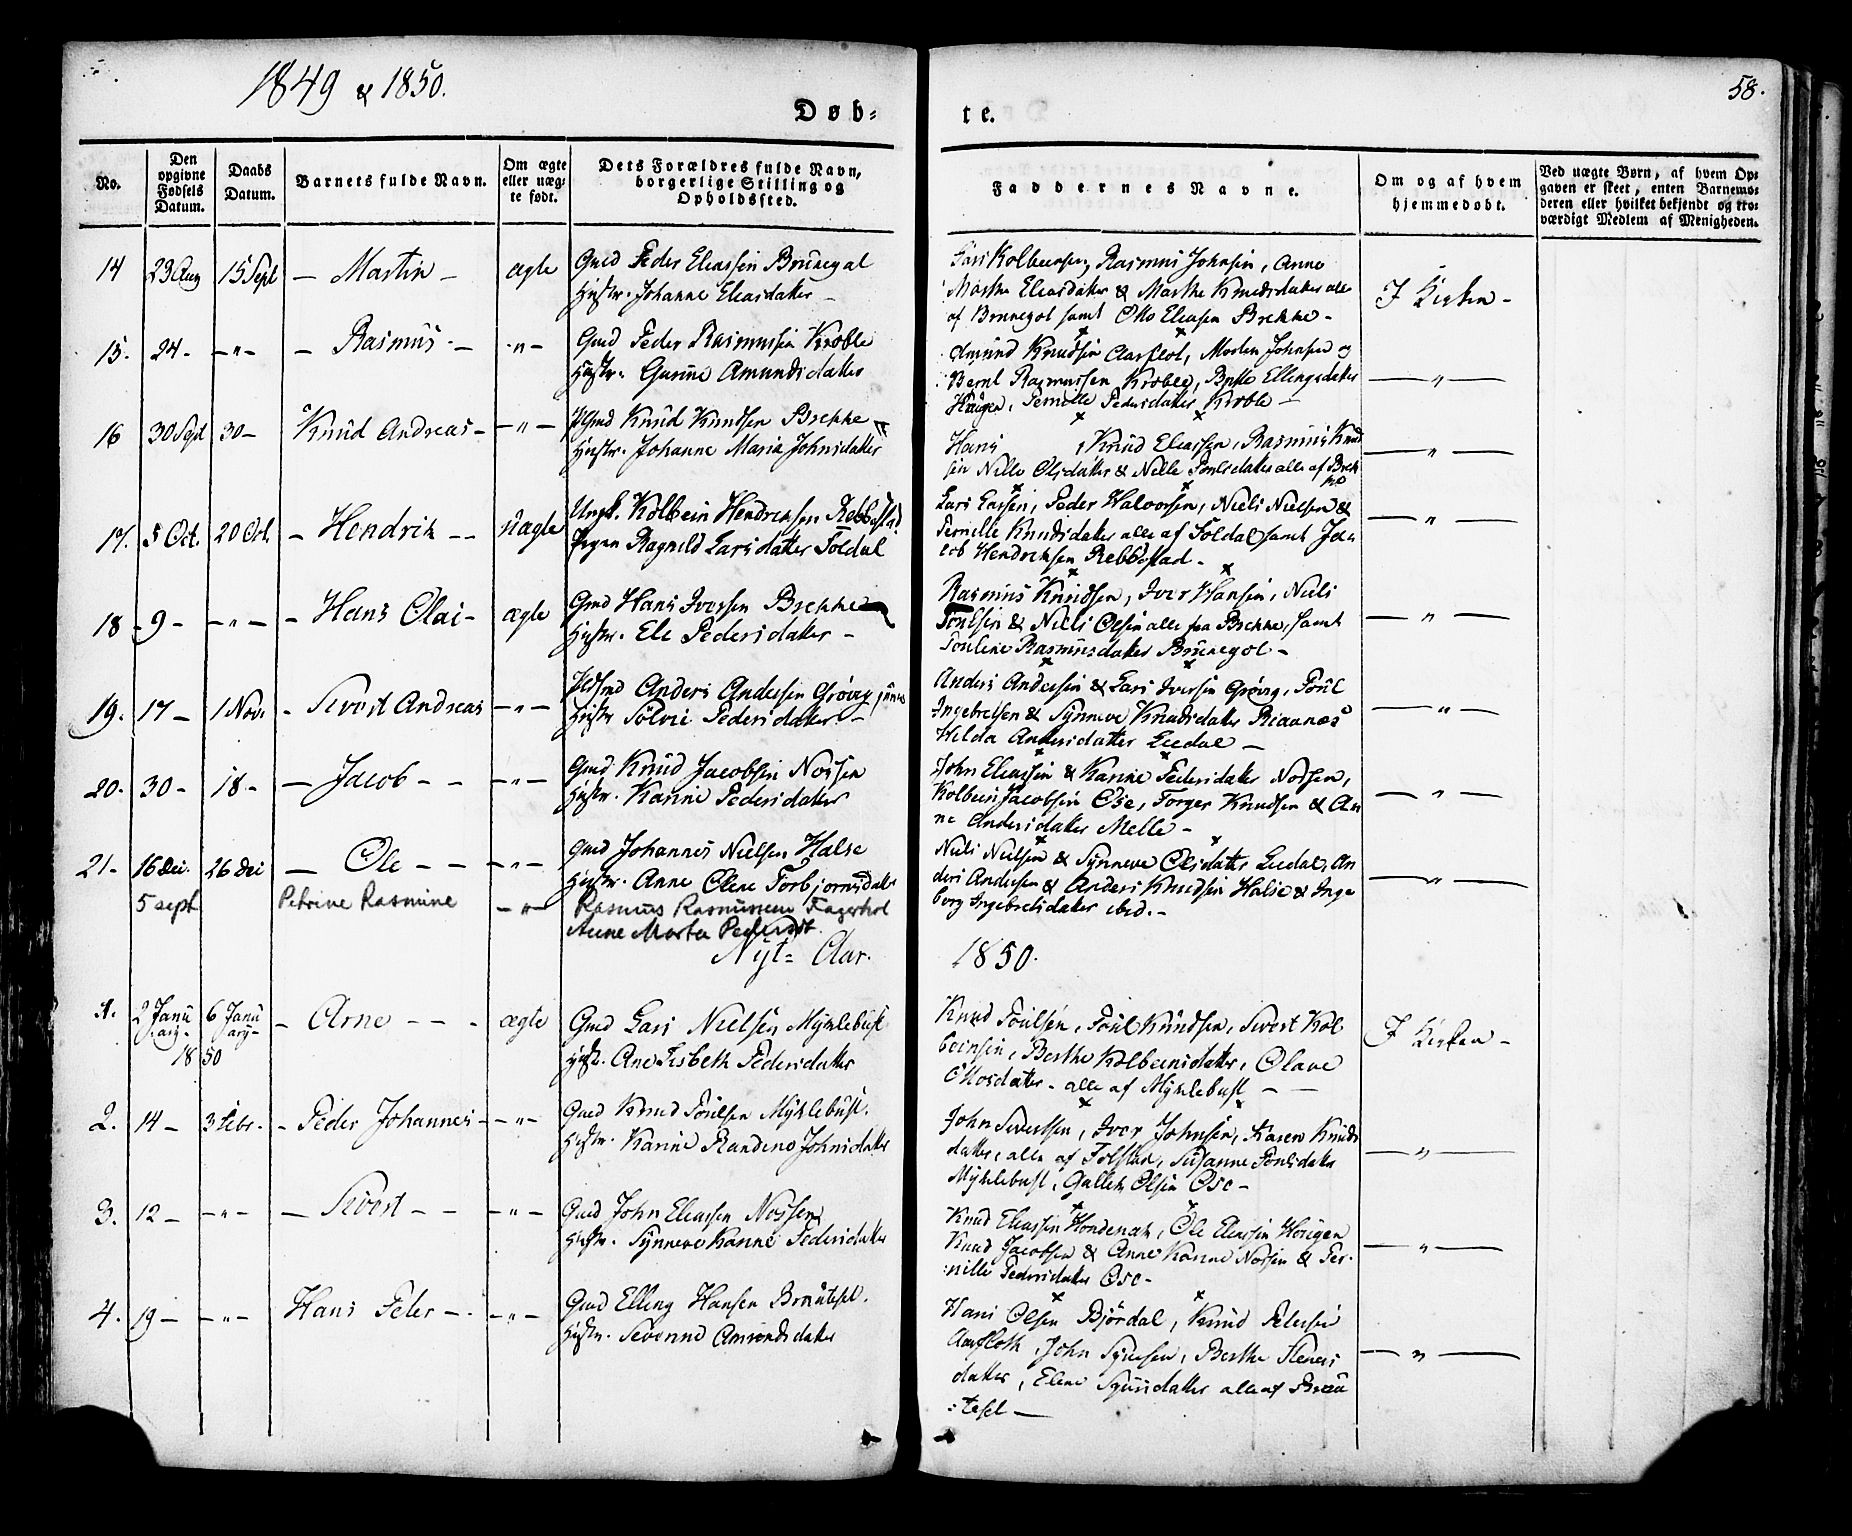 1849 & 1850.
58.
Døb-
te.
No.
Den opgivne Fødsels Datum.
Daabs Datum.
Barnets fulde Navn.
Om ægte eller uæg- te født.
Dets Forældres fulde Navn, borgerlige Stilling og Opholdssted.
Faddernes Navne.
Om og af hvem hjemmedøbt.
Ved uægte Børn, af hvem Op- gaven er skeet, enten Barnemo- deren eller hvilket bekjendt og tro- værdigt Medlem af Menigheden.
14 23 Aug 15 Sept – Martin – ægte Gmd Peder Eliassen Brunegot
Hustr. Johanne Eliasdatter –
Lars Kolbensen, Rasmus Johnsen, Anne
Marthe Eliasdatter & Marthe Knudsdatter alle
af Brunegot samt Otto Eliasen Brekke –
I Kirken –
15. 24 – – " – – Rasmus – – " – Gmd Peder Rasmussen Kroble
Hustr. Gurine Amundsdatter
Amund Knudsen Aarflot, Morten Johnsen og
Bernt Rasmussen Kroble, Britte Ellingsdatter
Haugen, Pernille Pedersdatter Kroble –
– " –
16 30 Sept 30 – Knud Andreas – – " – Knud Knudsen Brekke
Hustr. Johanne Maria Johnsdatter
Hans , Knud Eliassen, Rasmus Knud
sen Nille Olsdatter & Nille Poulsdatter alle af Brek
ke
– " –
17. 5 Oct. 20 Oct. – Hendrik – – uægte Ungk. Kolbein Hendriksen Rebbestad
Pigen Ragnild Larsdatter Foldal
Lars Larsen, Peder Halvorsen, Niels Nielsen &
Pernille Knudsdatter alle af Foldal samt Ja-
cob Hendriksen Rebbestad –
– " –
18 9 – – " – – Hans Olai – ægte Gmd Hans Iversen Brekke
Hustr. Ele Pedersdatter –
Rasmus Knudsen, Iver Hansen, Niels
Poulsen & Niels Olsen alle fra Brekke, samt
Pouline Rasmusdatter Brunegot –
– " –
19. 17 – 1 Nov. – Sivert Andreas – " – Anders Andersen Grøvig junior
Hustr Sølvie Pedersdatter –
Anders Andersen & Lars Iversen Grøvig, Poul
Ingebretsen & Synneve Knudsdatter Riaanæs
Hilda Andersdatter Liedal –
– " –
20. 30 – 18 – – Jacob – – – " – Gmd Knud Jacobsen Nossen
Hustr. Karine Pedersdatter
John Eliassen & Karine Pedersdatter Nossen,
Kolbein Jacobsen Ose, Torger Knudsen & An
ne Andersdatter Melle –
– " –
21 – 16 Dec. 26 Dec – Ole – – – " – Gmd Johannes Nielsen Halse
Hustr. Anne Olene Torbjørnsdatter
Niels Nielsen & Synneve Olsdatter Liedal, An
ders Andersen & Anders Knudsen Halse & Inge
borg Ingebretsdatter ibid. –
– " –
5 sept Petrine Rasmine – " – Rasmus Rasmussen Fagerhol
Anne Marta Pedersdt.
Nyt- Aar.
1850.
1. 2 Janu
ary – 6 Janu
ary – – Arne – – – ægte Gmd Lars Nielsen Myklebust
1850
Hustr. Ane Lisbeth Pedersdatter
Knud Poulsen, Poul Knudsen, Sivert Kol
beinsen, Berthe Kolbeinsdatter, Olave
Ottosdatter – alle af Myklebust – –
I Kirken –
2. 14 – 3 Febr. – Peder Johannes – – " – Gmd Knud Poulsen Myklebust.
Hustr. Karine Randine Johnsdatter
John Sivertsen, Iver Johnsen, Karen Knuds
datter, alle af Folstad, Susanne Poulsdatter
Myklebust, Gullek Olsen Ose –
– " –
3. 12 – – " – – Sivert – – – " – Gmd John Eliassen Nossen
Hustr. Synneve Karine Pedersdatter
Knud Eliassen Hondenak, Ole Eliassen Hougen
Knud Jacobsen & Anne Karine Nossen & Per-
nille Pedersdatter Ose –
– " –
4. 19 – – " – Hans Peter – – – " – Gmd Elling Hansen Brauteset.
Hustr. Severine Amundsdatter
Hans Olsen Bjørdal, Knud Petersen
Aarfloth, John Syversen, Berthe Steners
datter, Eline Syversdatter alle af Brau
teset –
– " –